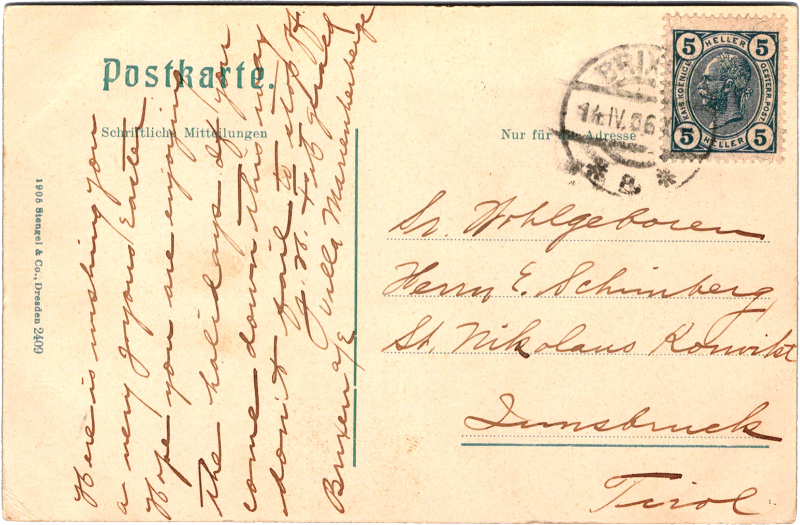 Postkarte.
Schriftliche Mitteilungen
Nur für die Adresse
1905 Stengel & Co., Dresden 2409
Here is wishing you
a very Joyous Easter
Hope you are enjoying
the holidays. If you
come down this way
don't fail to stop off.
Villa Marienberg
Brixen a/E
BRIX
14 IV 06
* a. *
5 HELLER 5
KAIS. KOENIGL.
OESTERR. POST
5 HELLER 5
Sr. Wohlgeboren
Herrn E. Schimberg
St. Nikolaus Konvikt
Innsbruck
Tirol